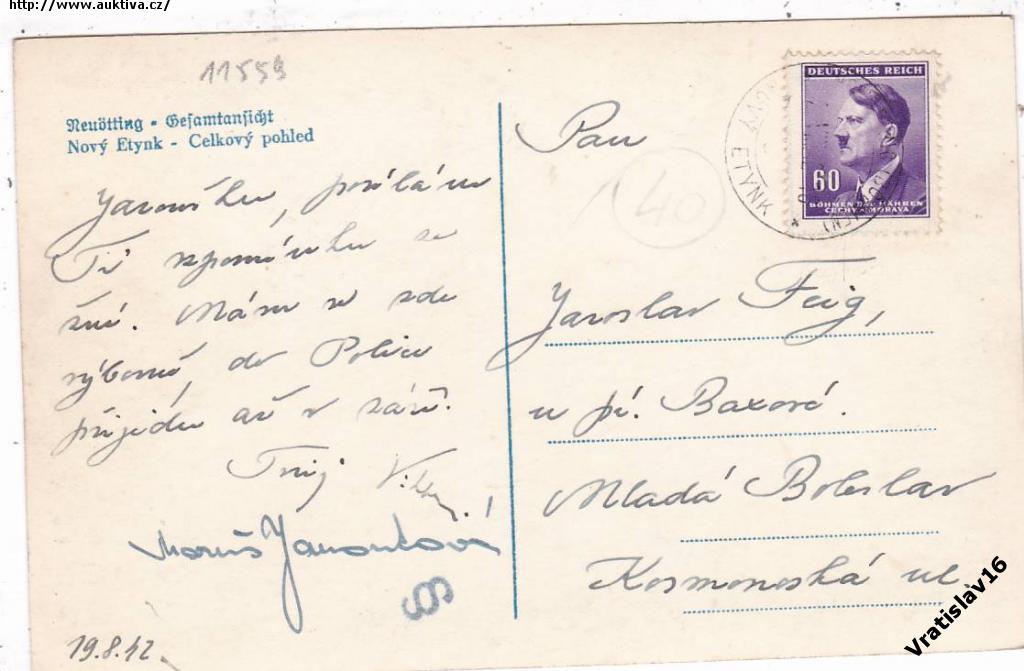 http://www.auktiva.cz/
11559
Neuötting - Gesamtansicht
Nový Etynk - Celkový pohled
Jaroušku, posílám
Ti vzpomínku ze
žní. Mám se zde
výborně, do Police
přijedu až v září.
Tvůj
19.8.42
Pan
40
Jaroslav Feig,
u pí. Baxové.
Mladá Boleslav
Kosmonoská ul.
DEUTSCHES REICH
60
BÖHMEN UND MÄHREN
ČECHY A MORAVA
NOVÝ ETYNK
Vratislav16